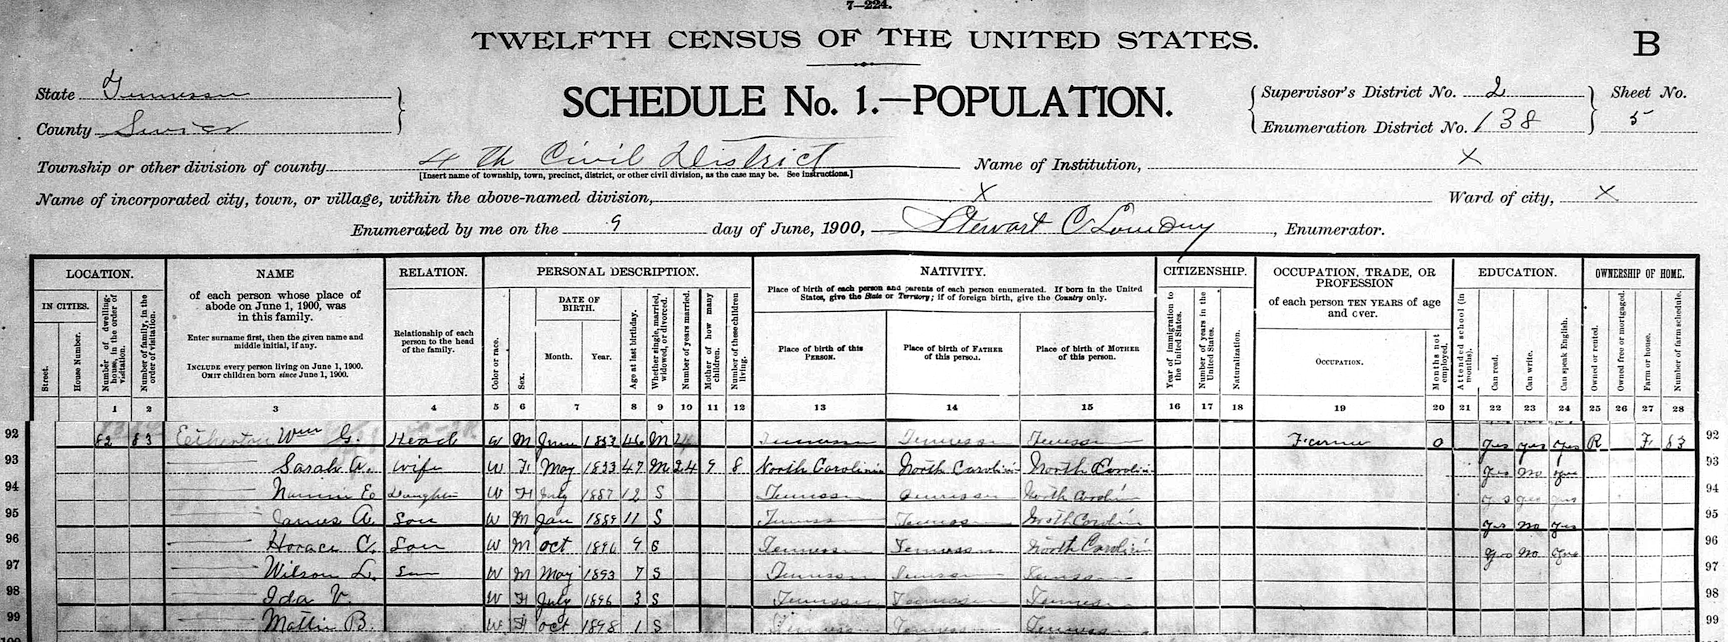 7—224.
TWELFTH CENSUS OF THE UNITED STATES.
B
State Tennessee
County Sevier
SCHEDULE No. 1.—POPULATION.
Supervisor's District No. 2
Enumeration District No. 138
Sheet No.
5
Township or other division of county 4th Civil District
[Insert name of township, town, precinct, district, or other civil division, as the case may be. See instructions.]
Name of Institution, X
Name of incorporated city, town, or village, within the above-named division, X
Ward of city, X
Enumerated by me on the 9 day of June, 1900, Stewart C Lowdny, Enumerator.
LOCATION. NAME RELATION. PERSONAL DESCRIPTION. NATIVITY. CITIZENSHIP. OCCUPATION, TRADE, OR PROFESSION EDUCATION. OWNERSHIP OF HOME.
IN CITIES.
Street.
House Number.
Number of dwelling-house, in the order of visitation.
Number of family, in the order of visitation.
of each person whose place of abode on June 1, 1900, was in this family.
Enter surname first, then the given name and middle initial, if any.
INCLUDE every person living on June 1, 1900.
OMIT children born since June 1, 1900.
Relationship of each person to the head of the family.
Color or race.
Sex.
DATE OF BIRTH.
Month. Year.
Age at last birthday.
Whether single, married, widowed, or divorced.
Number of years married.
Mother of how many children.
Number of these children living.
Place of birth of each person and parents of each person enumerated. If born in the United States, give the State or Territory; if of foreign birth, give the Country only.
Place of birth of this PERSON.
Place of birth of FATHER of this person.
Place of birth of MOTHER of this person.
Year of immigration to the United States.
Number of years in the United States.
Naturalization.
of each person TEN YEARS of age and over.
OCCUPATION.
Months not employed.
Attended school (in months).
Can read.
Can write.
Can speak English.
Owned or rented.
Owned free or mortgaged.
Farm or house.
Number of farm schedule.
1 2 3 4 5 6 7 8 9 10 11 12 13 14 15 16 17 18 19 20 21 22 23 24 25 26 27 28
92 82 83 Etherton Wm G. Head W M June 1853 46 M 24 Tennessee Tennessee Tennessee Farmer 0 yes yes yes R F 83 92
93 Sarah A. Wife W F May 1853 47 M 24 9 8 North Carolina North Carolina North Carolina yes no yes 93
94 Nannie E Daughter W F July 1887 12 S Tennessee Tennessee North Carolina yes yes yes 94
95 James A. Son W M Jan 1889 11 S Tennessee Tennessee North Carolina yes no yes 95
96 Horace C. Son W M Oct 1890 9 S Tennessee Tennessee North Carolina yes no yes 96
97 Wilson L. Son W M May 1893 7 S Tennessee Tennessee Tennessee 97
98 Ida V. W F July 1896 3 S Tennessee Tennessee Tennessee 98
99 Mattie B. W F Oct 1898 1 S Tennessee Tennessee Tennessee 99